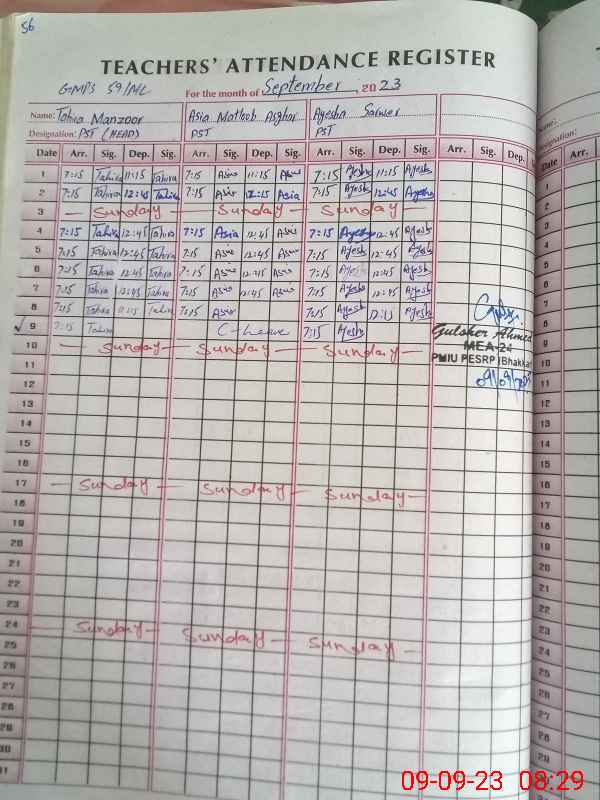 56
TEACHERS' ATTENDANCE REGISTER
GMPS 59/ML For the month of September 2023
Name: Tahira Manzoor Asia Matloob Asghar Ayesha Sarwer
Designation: PST (HEAD) PST PST
Date Arr. Sig. Dep. Sig. Arr. Sig. Dep. Sig. Arr. Sig. Dep. Sig. Arr. Sig. Dep. Sig.
1 7:15 Tahira 11:15 Tahira 7:15 Asia 11:15 Asia 7:15 Ayesh 11:15 Ayesh
2 7:15 Tahira 12:45 Tahira 7:15 Asia 12:15 Asia 7:15 Ayesh 12:45 Ayesha
3 - Sunday - - Sunday - Sunday -
4 7:15 Tahira 12:45 Tahira 7:15 Asia 12:45 Asia 7:15 Ayesha 12:45 Ayesh
5 7:15 Tahira 12:45 Tahira 7:15 Asia 12:45 Asia 7:15 Ayesh 12:45 Ayesh
6 7:15 Tahira 12:45 Tahira 7:15 Asia 12:45 Asia 7:15 Ayesh 12:45 Ayesh
7 7:15 Tahira 12:45 Tahira 7:15 Asia 12:45 Asia 7:15 Ayesh 12:45 Ayesh
8 7:15 Tahira 11:15 Tahira 7:15 Asia 7:15 Ayesh 12:15 Ayesh
9 7:15 Tahira C-Leave 7:15 Ayesh Gulsher Ahmed
MEA-24
10 - Sunday - Sunday - Sunday -
PMIU PESRP (Bhakkar)
11
12
13
14
15
16
17 - Sunday - Sunday - Sunday -
18
19
20
21
22
23
24 - Sunday - Sunday - Sunday -
25
26
27
28
29
30
31
Name:
Designation:
Date Arr.
1
2
3
4
5
6
7
8
9
10
11
12
13
14
15
16
17
18
19
20
21
22
23
24
25
26
27
28
29
09-09-23 08:29